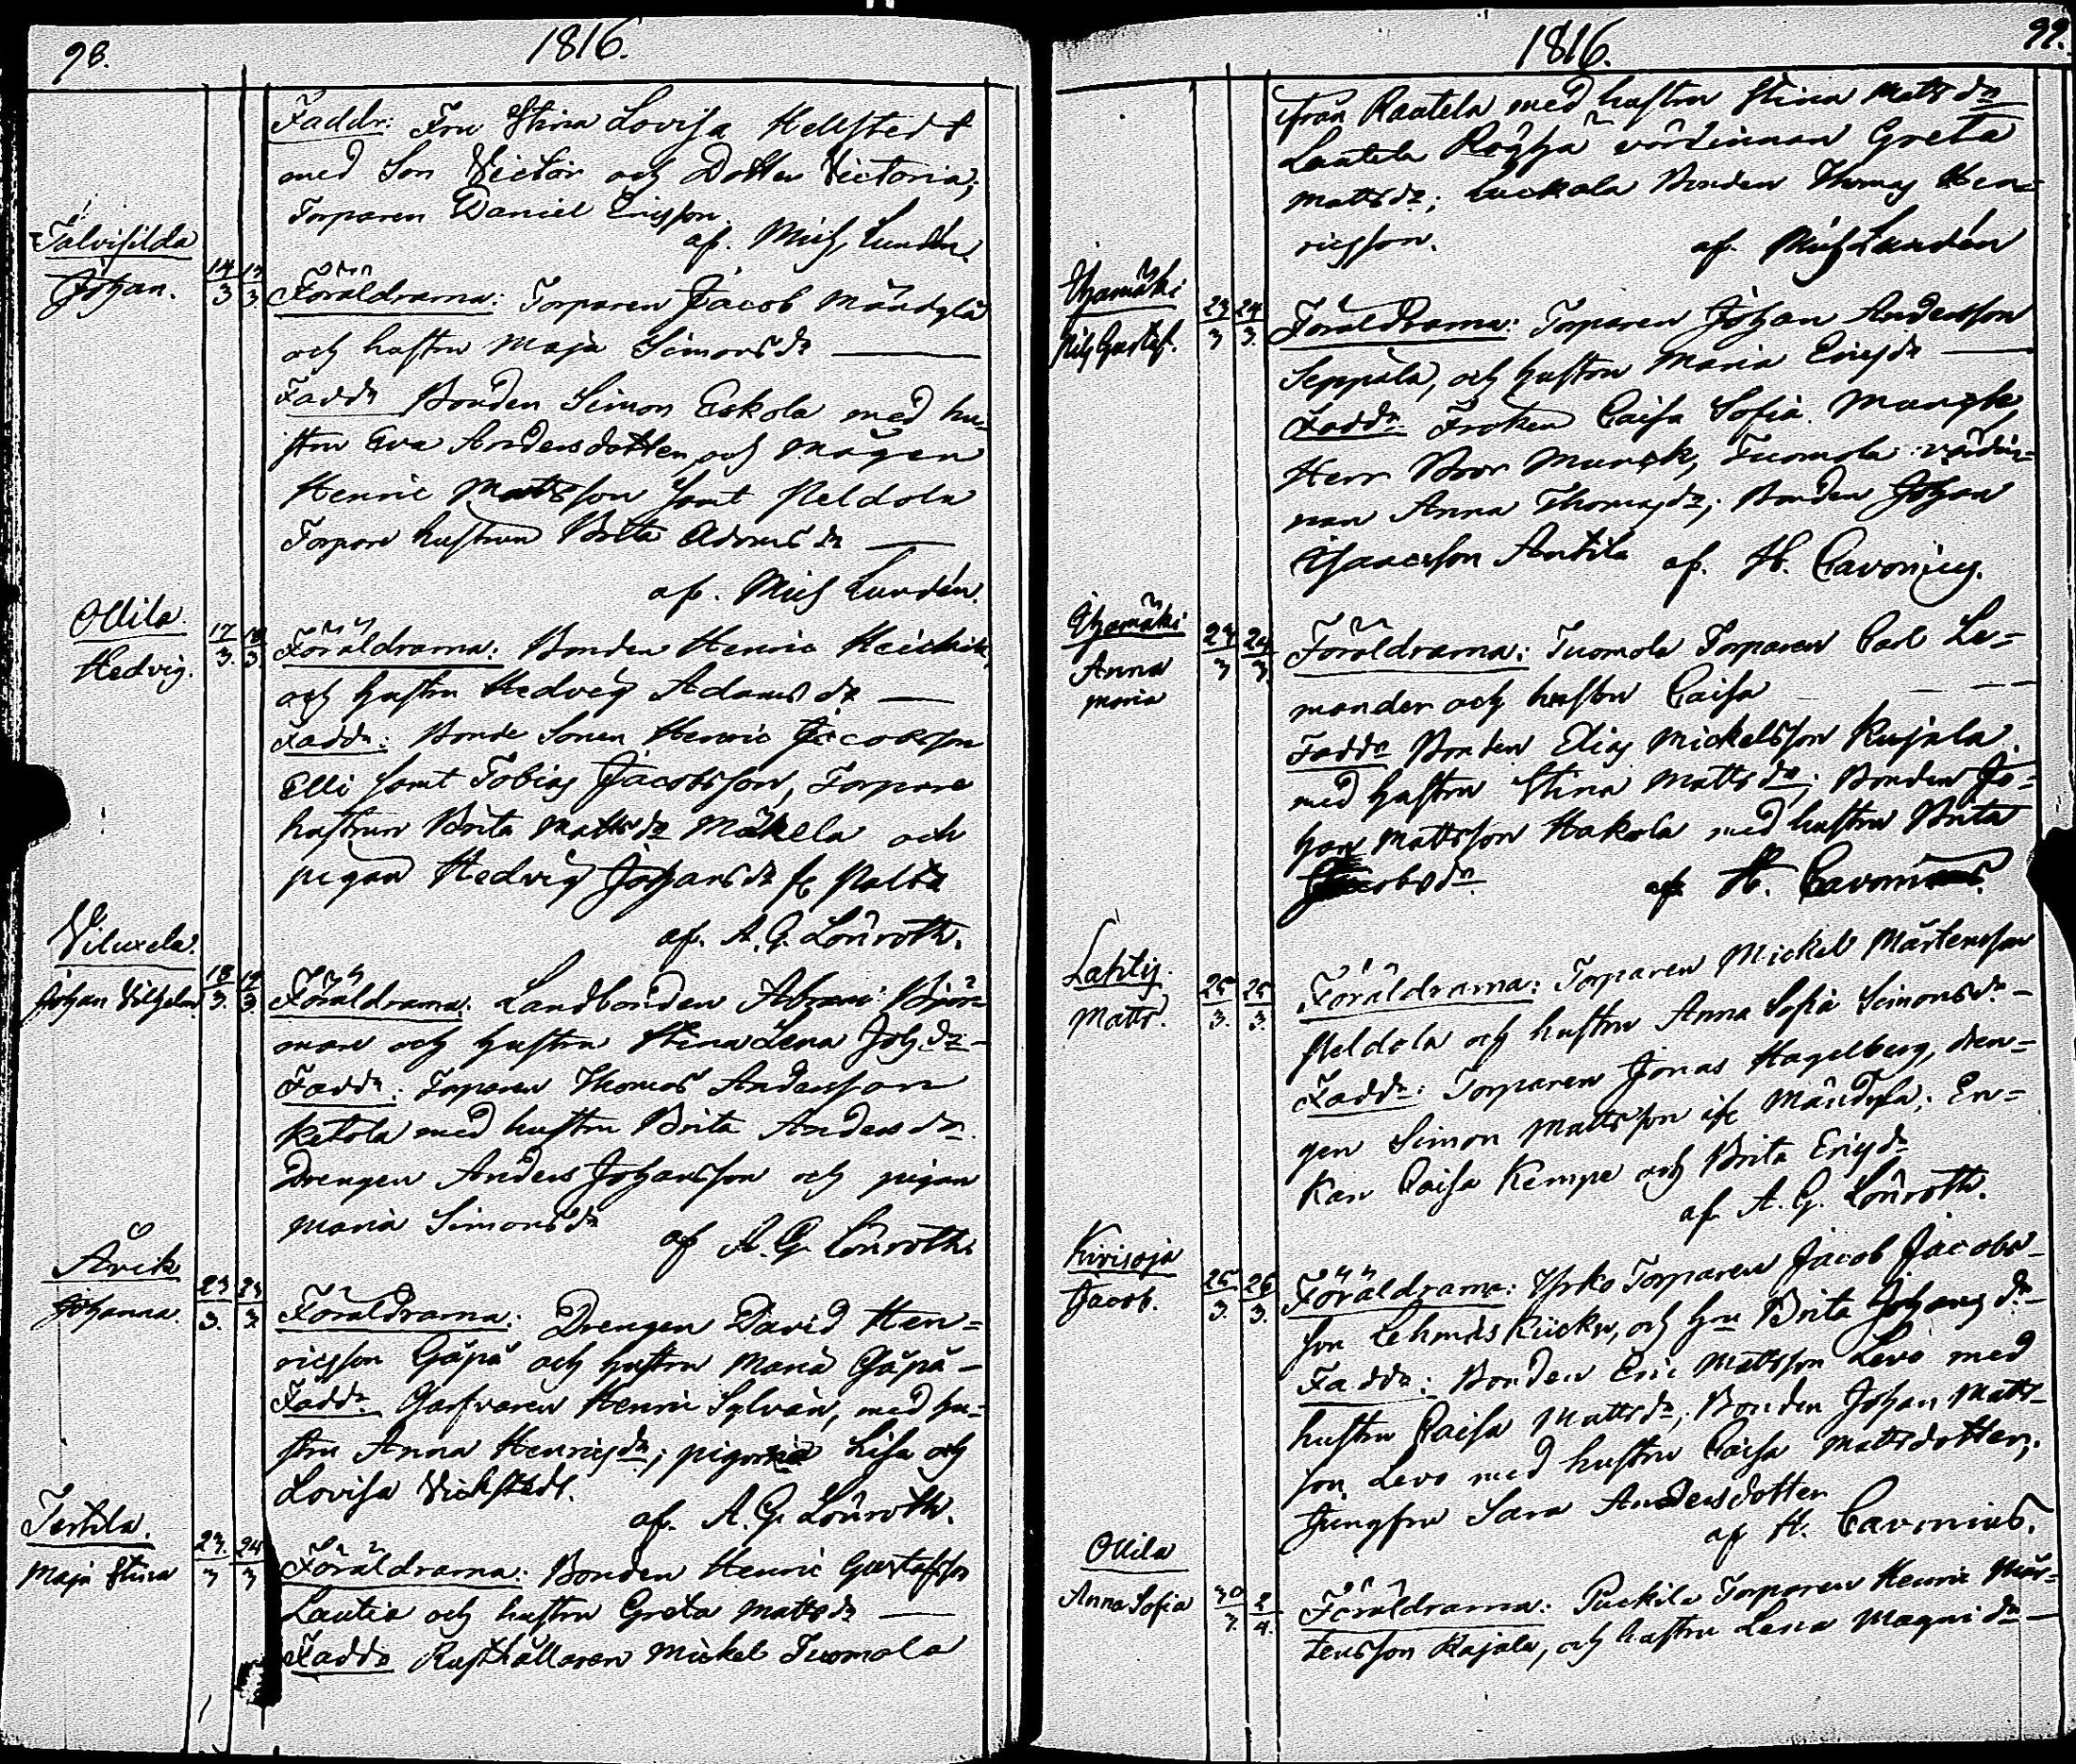 98.
1816.
Faddr: Fru Stina Lovisa Hellsted
med Son Victor och Dotter Victoria;
Torparen Daniel Ericsson.
af. Mich Lundén.
Talvisilda
Johan.
14/3 17/3
Föräldrarna: Torparen Jacob Mändylä
och hustru Maja Simonsdr
Faddr Bonden Simon Eskola med hu-
stru Eva Andersdotter och Mågen
Henric Mattsson samt Peldola
Torpare hustrun Brita Adamsdr
af. Mich Lundén.
Ollila.
Hedvig.
17/3. 18/3
Föräldrarna: Bonden Henric Heickilä
och hustru Hedvig Adamsdr
Faddr: Bonde Sonen Henric Jacobsson
Elli samt Tobias Jacobsson, Torpare
hustrun Brita Mattsdr Mäkela och
pigan Hedvig Johansdr fr Palta
af. A. G. Lönroth.
Viluxela.
Johan Vilhelm
18/3. 19/3.
Föräldrarna: Landbonden Abram Björ-
man och hustru Stina Lena Joh.dr
Faddr: Torparen Thomas Andersson
Ketola med hustru Brita Andersdr.
Drengen Anders Johansson och pigan
Maria Simonsdr
af A. G. Lönroth
Arik
Johanna.
23/3. 23/3
Föräldrarna: Drengen David Hen-
ricsson Gäpä och hustru Maria Gäpä
Faddr. Garfvaren Henric Sylvän, med hu-
stru Anna Henricsdr; pigorna Lisa och
Lovisa Vickstedt.
af. A. G. Lönroth.
Tertila.
Maja Stina
23./3 24/3
Föräldrarna: Bonden Henric Gustafsson
Lautia och hustru Greta Mattsdr
Faddr Rusthållaren Mickel Tuomola
99.
1816.
från Raatela med hustru Stina Mattsdr
Laatela värdinnan Greta
Mattsdr; Luckala Bonden Thomas Hen-
ricsson.
af. Mich Lundén
Nils Gustaf.
23/3 24/3.
Föräldrarna: Torparen Johan Andersson
Seppälä, och hustru Maria Ericsdr
Faddr. Fröken Caisa Sofia Munck,
Herr Bror Munck, Tuomola värdin-
nan Anna Thomasdr; Bonden Johan
Isaacsson Antila
af. H. Cavonius.
Anna
Maria
24/3 24/3
Föräldrarna: Tuomola Torparen Carl Le-
mander och hustru Caisa
Faddr Bonden Elias Mickelsson Kujala
med hustru Stina Mattsdr; Bonden Jo-
han Mattsson Hakola med hustru Brita
Jacobsdr.
af H. Cavonius.
Lahtis.
Matts.
25/3. 25/3.
Föräldrarna: Torparen Mickel Mårtensson
Peldola och hustru Anna Sofia Simonsdr
Faddr: Torparen Jonas Hagelberg, dren-
gen Simon Mattsson ifr Mändylä; En-
kan Caisa Kempe och Brita Ericsdr
af A. G. Lönroth.
Kirisoja
Jacob.
25/3. 26/3.
Föräldrarna: Yrko Torparen Jacob Jacobs-
son och hru Brita Johansdr
Faddr: Bonden Eric Mattsson Levo med
hustru Caisa Mattsdr; Bonden Johan Matts-
son Levo med hustru Caisa Mattsdotter;
Jungfru Sara Andersdotter
af H. Cavonius.
Ollila
Anna Sofia
30/3. 2/4.
Föräldrarna: Puckila Torparen Henric Mår-
tensson Kajala, och hustru Lena Magnidr